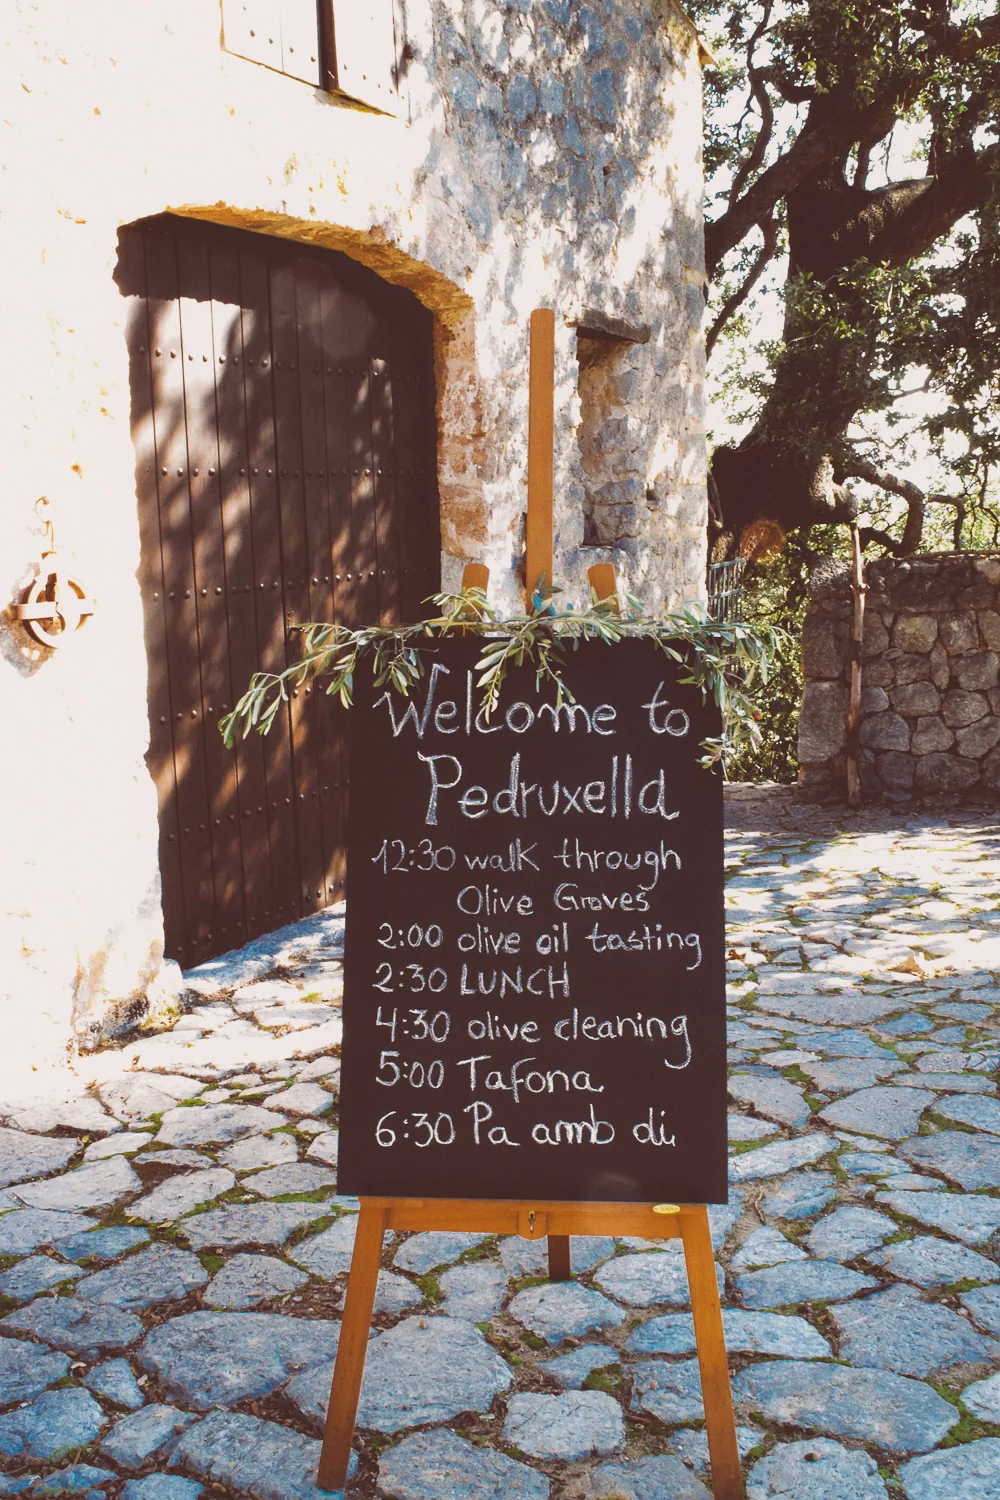 Welcome to
Pedruxella
12:30 walk through
Olive Groves
2:00 olive oil tasting
2:30 LUNCH
4:30 olive cleaning
5:00 Tafona
6:30 Pa amb oli